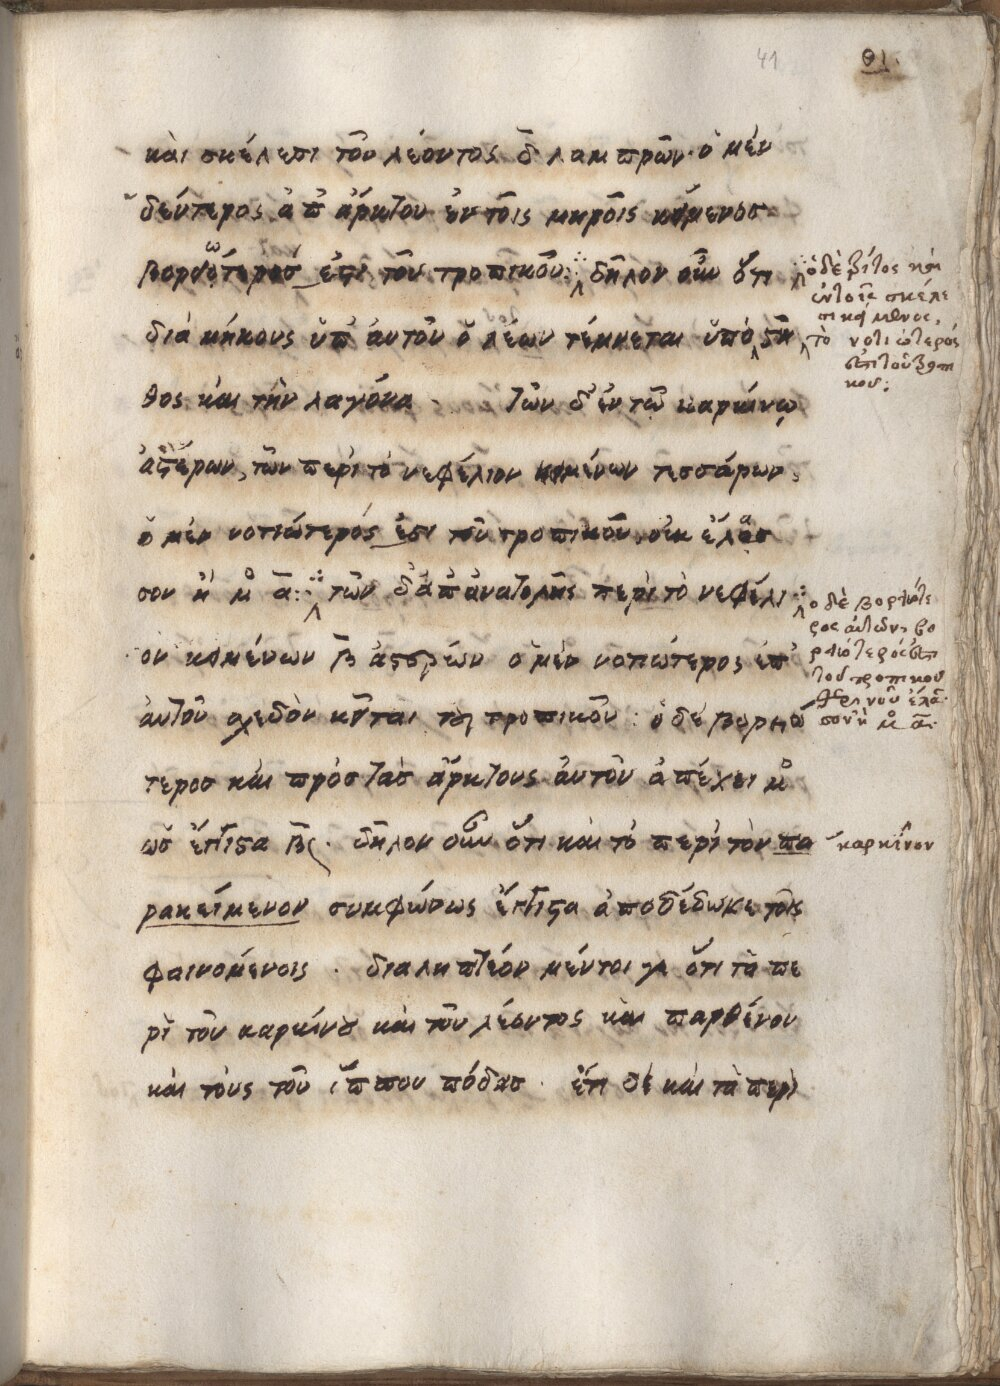 41 θι.
καὶ σκέλεσι τοῦ λέοντος δ̄ λαμπρῶν· ὁ μὲν
δεύτερος ἀπ' ἄρκτου ἐν τοῖς μικροῖς κείμενοσ
βορειότεροσ ἐστὶ τοῦ τροπικοῦ: δῆλον οὖν ὅτι
διὰ μήκους ὑπ' αὐτοῦ ὁ λέων τέμνεται ὑπὸ στῆ
θος καὶ τὴν λαγόνα . τῶν δ' ἐν τῷ καρκίνῳ
ἀστέρων, τῶν περὶ τὸ νεφέλιον κειμένων τεσσάρων,
ὁ μὲν νοτιώτερός ἐστι τοῦ τροπικοῦ, οὐκ ἔλασ
σον ἢ μ° ᾱ: τῶν δ' ἀπ' ἀνατολῆς περὶ τὸ νεφέλι
ον κειμένων β̄ ἀστέρων ὁ μὲν νοτιώτερος ἐπ'
αὐτοῦ σχεδὸν κεῖται τοῦ τροπικοῦ : ὁ δὲ βορειώ
τεροσ καὶ πρὸσ τὰσ ἄρκτους αὐτοῦ ἀπέχει μ°
ὡσ ἔγγιστα β̄ς . δῆλον οὖν ὅτι καὶ τὸ περὶ τὸν πα
ρακείμενον συμφώνως ἔγγιστα ἀποδέδωκε τοῖς
φαινομένοις . διαληπτέον μέντοι γε ὅτι τὰ πε
ρὶ τοῦ καρκίνου καὶ τοῦ λέοντος καὶ παρθένου
καὶ τοὺς τοῦ ἵππου πόδασ . ἔτι δὲ καὶ τὰ περὶ
ὁ δὲ τρίτος καὶ
ἐν τοῖς σκέλε
σι κείμενος,
τὸ νοτιώτερός
ἐστι τοῦ τροπι
κοῦ:
ὁ δὲ βορειότε
ρος αὐτῶν, βο
ρειότερός ἐστι
τοῦ τροπικοῦ
θερινοῦ ἔλασ
σον ἢ μ° ᾱ.
καρκίνον